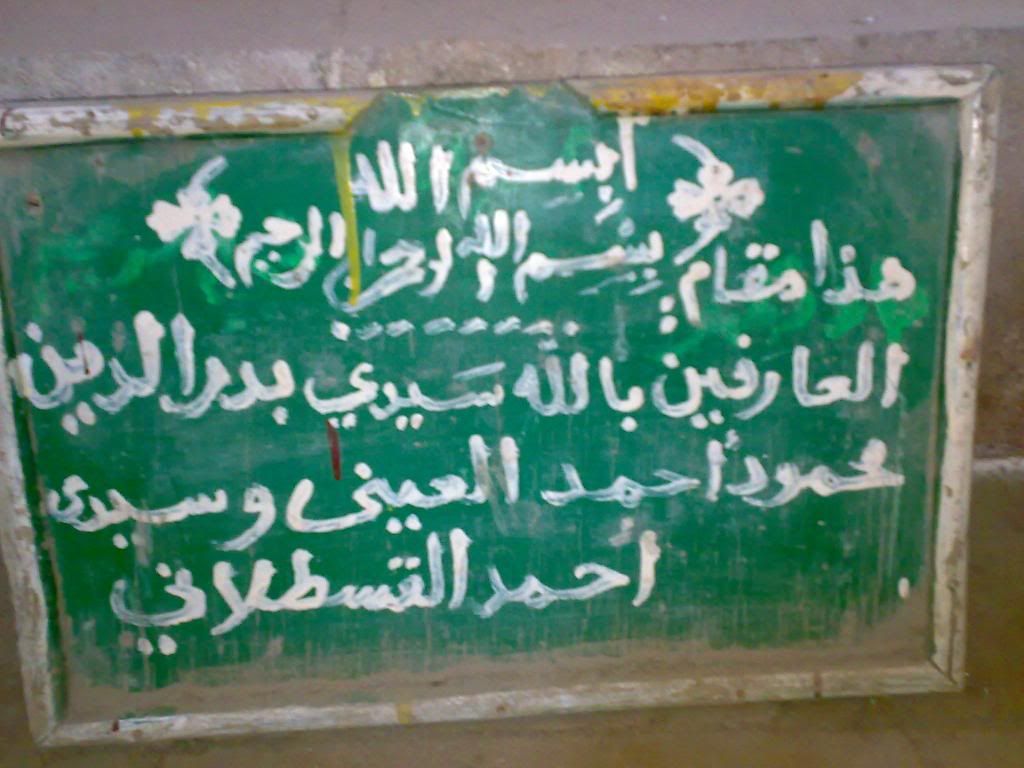 بسم الله
بسم الله الرحمن الرحيم
هذا مقام
العارفين بالله سيدي بدر الدين
محمود أحمد العينى وسيدى
أحمد القسطلاني